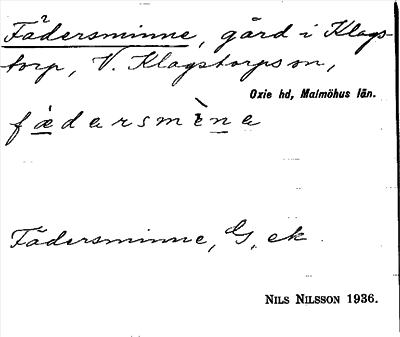 Fädersminne, gård i Klags-
torp, V. Klagstorps sn,
Oxie hd, Malmöhus län.
fædersmèna
Fädersminne, G. ek
NILS NILSSON 1936.